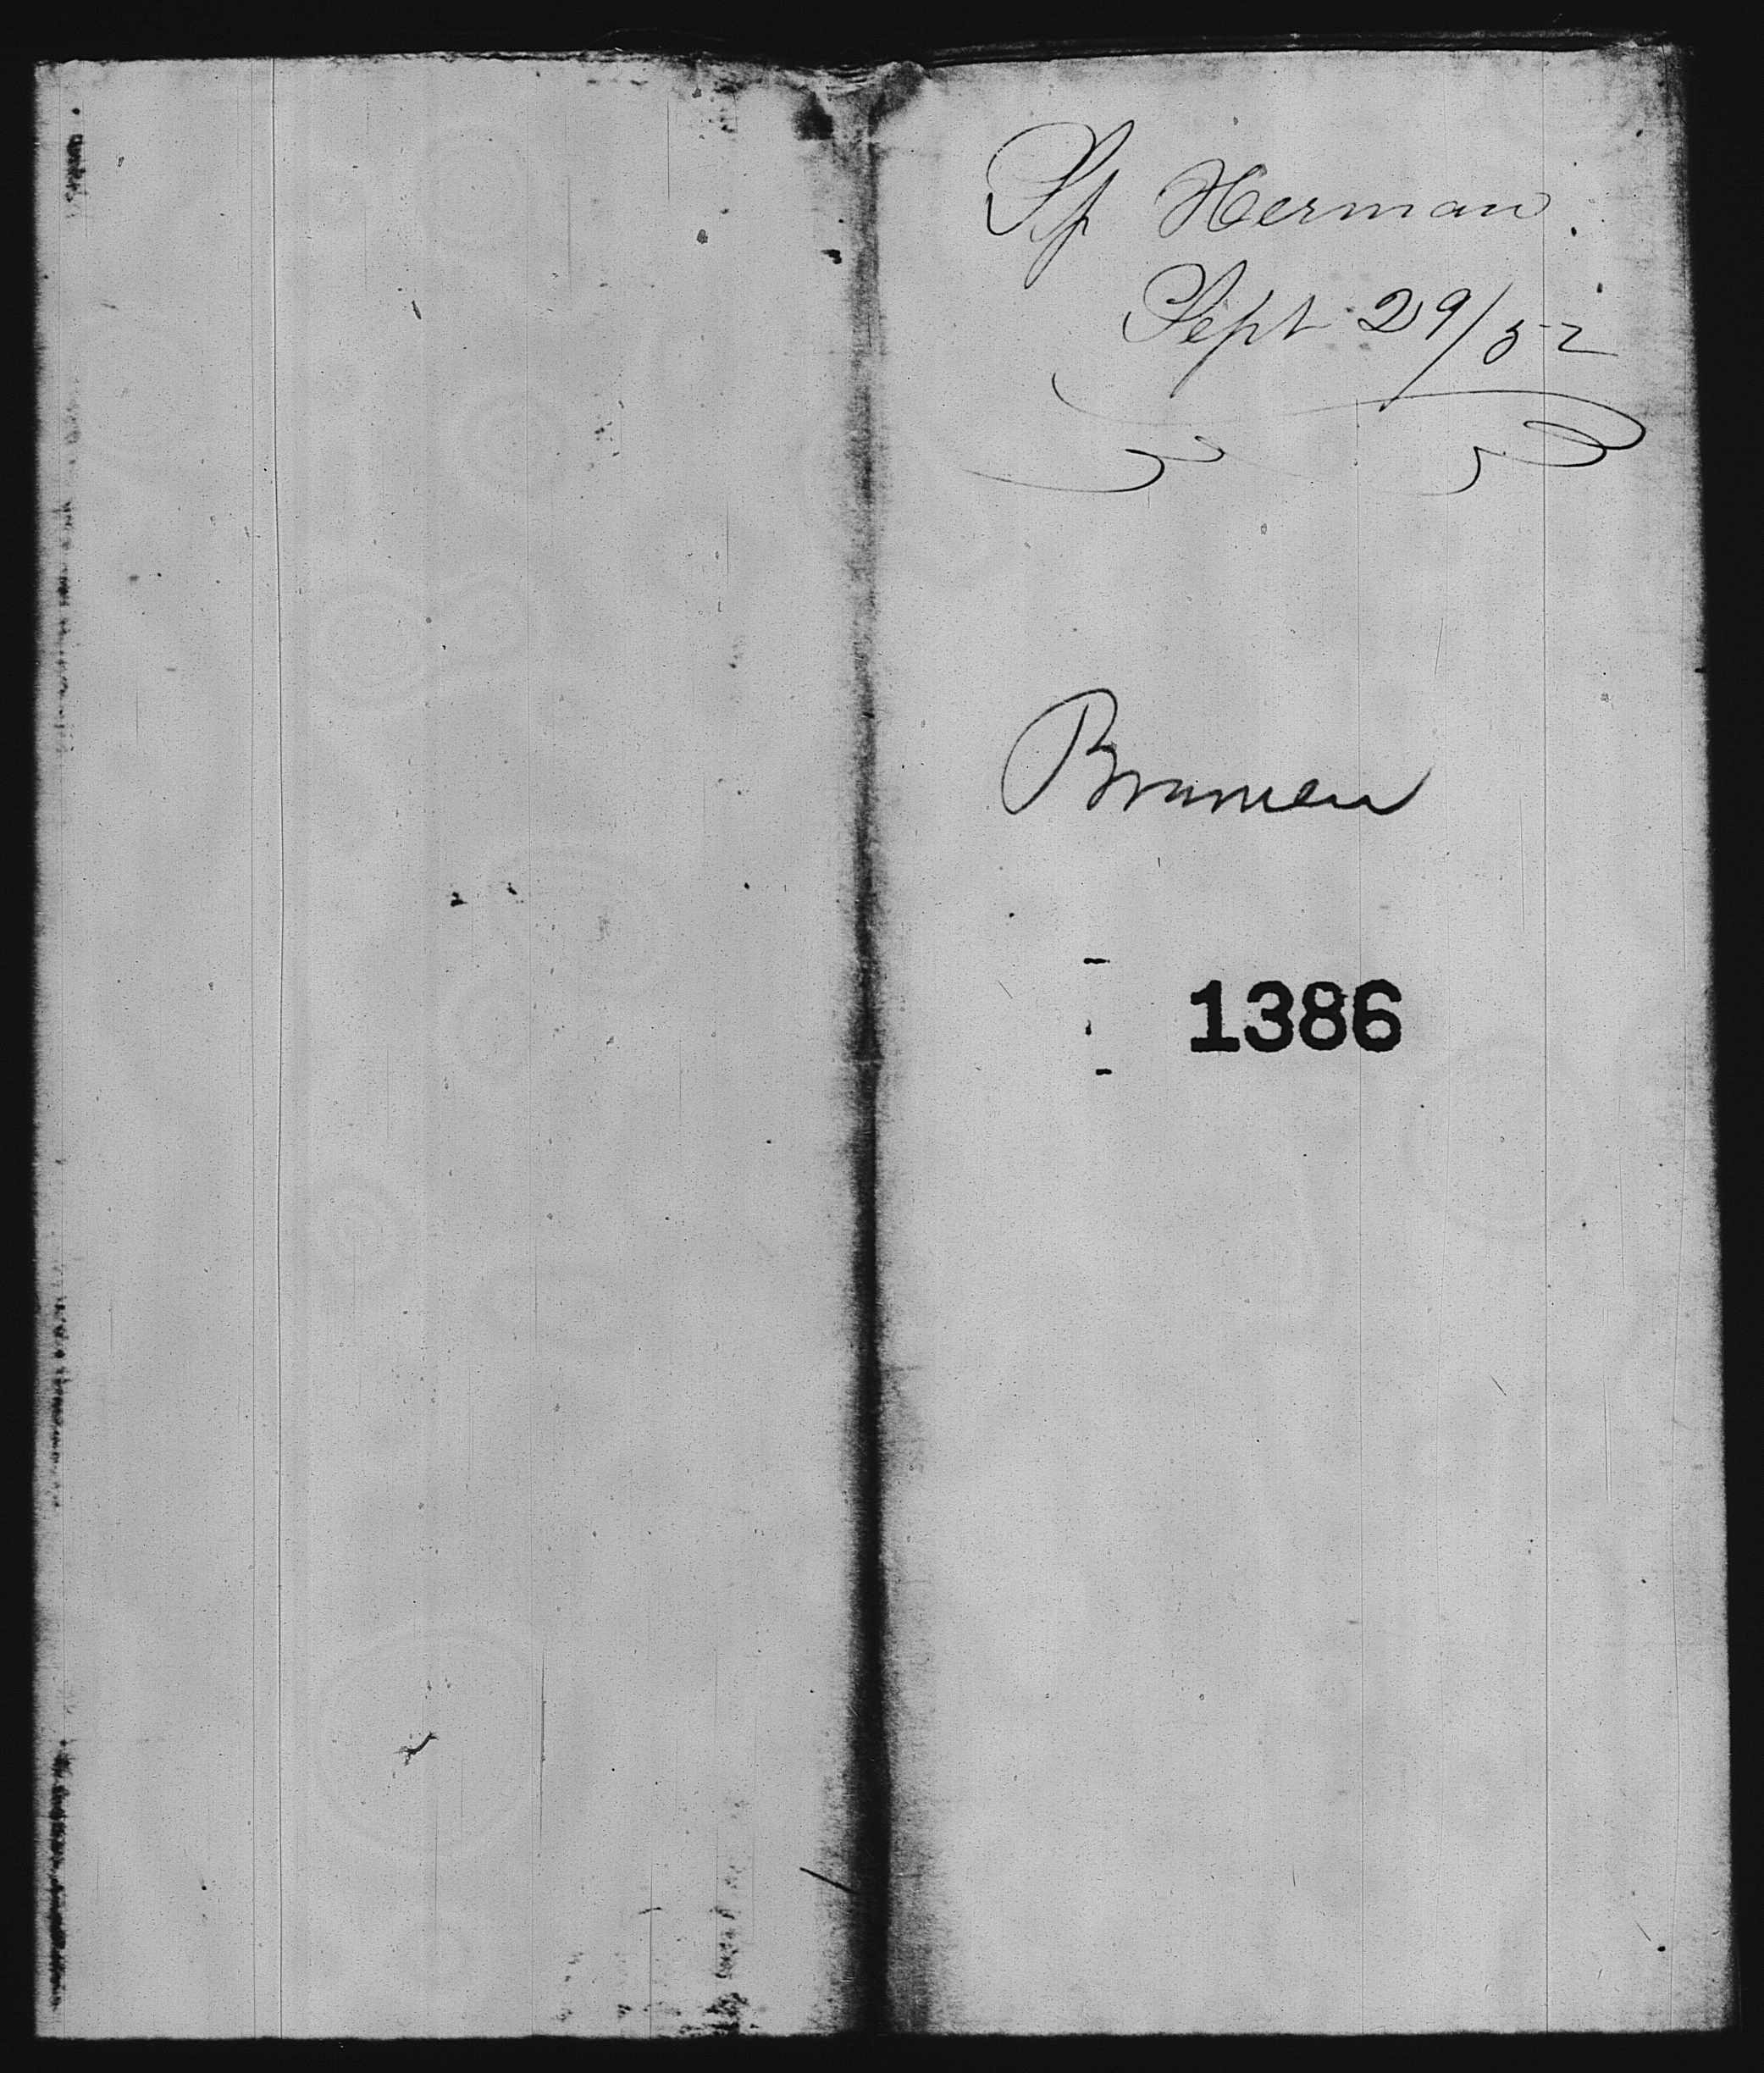 Sp Herman
Sept 29/52
Bremen
1386